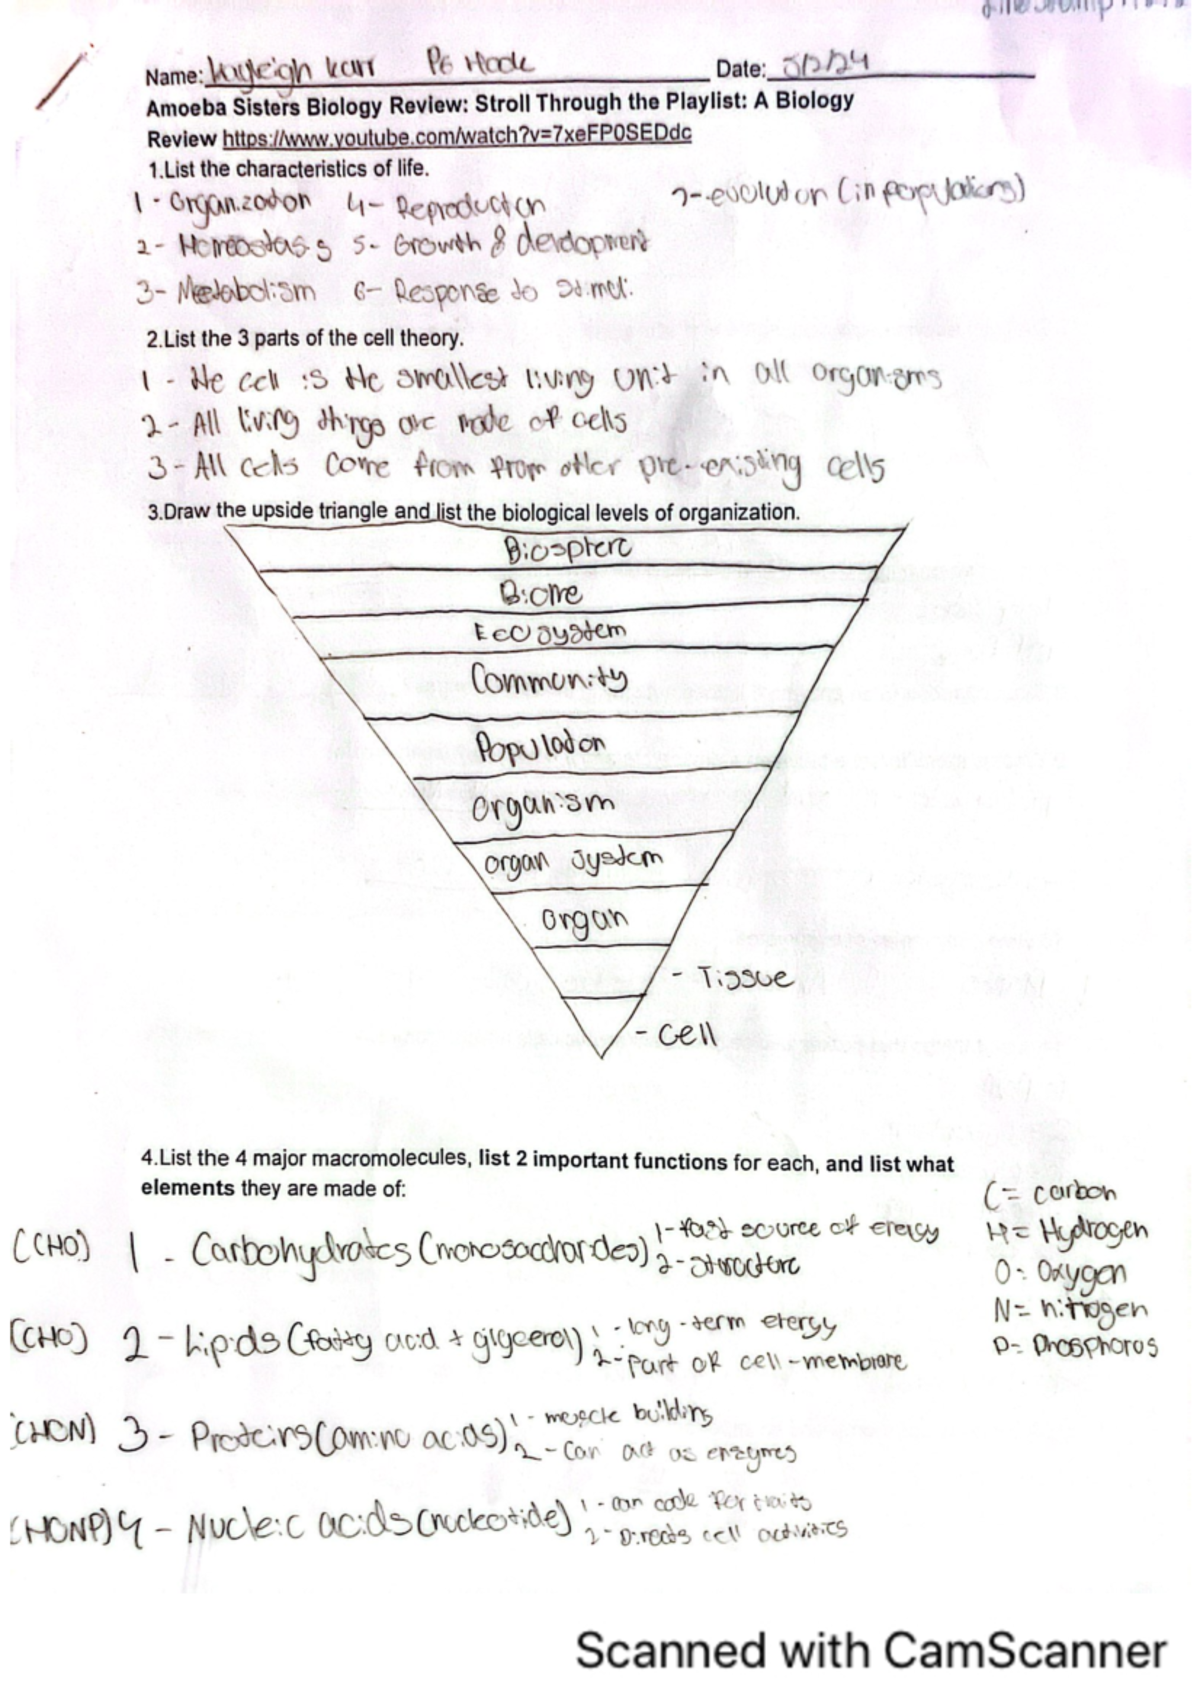 Name: Kayleigh Karr P6 Hock Date: 5/2/24
Amoeba Sisters Biology Review: Stroll Through the Playlist: A Biology
Review https://www.youtube.com/watch?v=7xeFP0SEDdc
1.List the characteristics of life.
1 - Organization 4- Reproduction 7-evolution (in populations)
2- Homeostasis 5- Growth & development
3- Metabolism 6- Response to stimuli
2.List the 3 parts of the cell theory.
1 - the cell is the smallest living unit in all organisms
2 - All living things are made of cells
3 - All cells come from from other pre-existing cells
3.Draw the upside triangle and list the biological levels of organization.
Biosphere
Biome
Ecosystem
Community
Population
organism
organ system
organ
- Tissue
- cell
4.List the 4 major macromolecules, list 2 important functions for each, and list what
elements they are made of:
C= carbon
H= Hydrogen
O= Oxygen
N= nitrogen
P= Phosphorus
(CHO) 1 - Carbohydrates (monosaccharides) 1-fast source of energy
2-structure
(CHO) 2 - Lipids (fatty acid + glycerol) 1-long-term energy
2-part of cell-membrane
(CHON) 3 - Proteins (amino acids) 1- muscle building
2-can act as enzymes
(CHONP) 4 - Nucleic acids (nucleotide) 1-can code for traits
2-Directs cell activities
Scanned with CamScanner